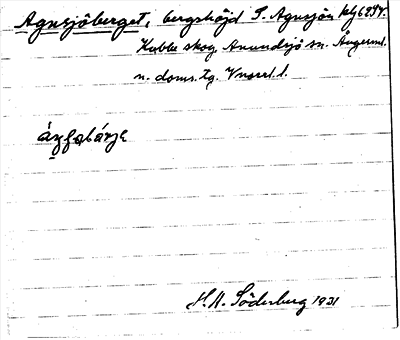 Agnsjöberget, bergshöjd S. Agnsjön
Kubbe skog Anundsjö sn. Ångerml.
n. doms. tg. Vnorrl. l.
H. A. Söderberg 1931